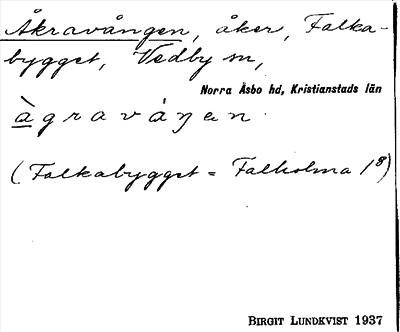 Åkravången, åker, Falka-
bygget, Vedby sn,
Norra Åsbo hd, Kristianstads län
àgravåŋen
(Falkabygget = Falholma 1⁸)
BIRGIT LUNDKVIST 1937